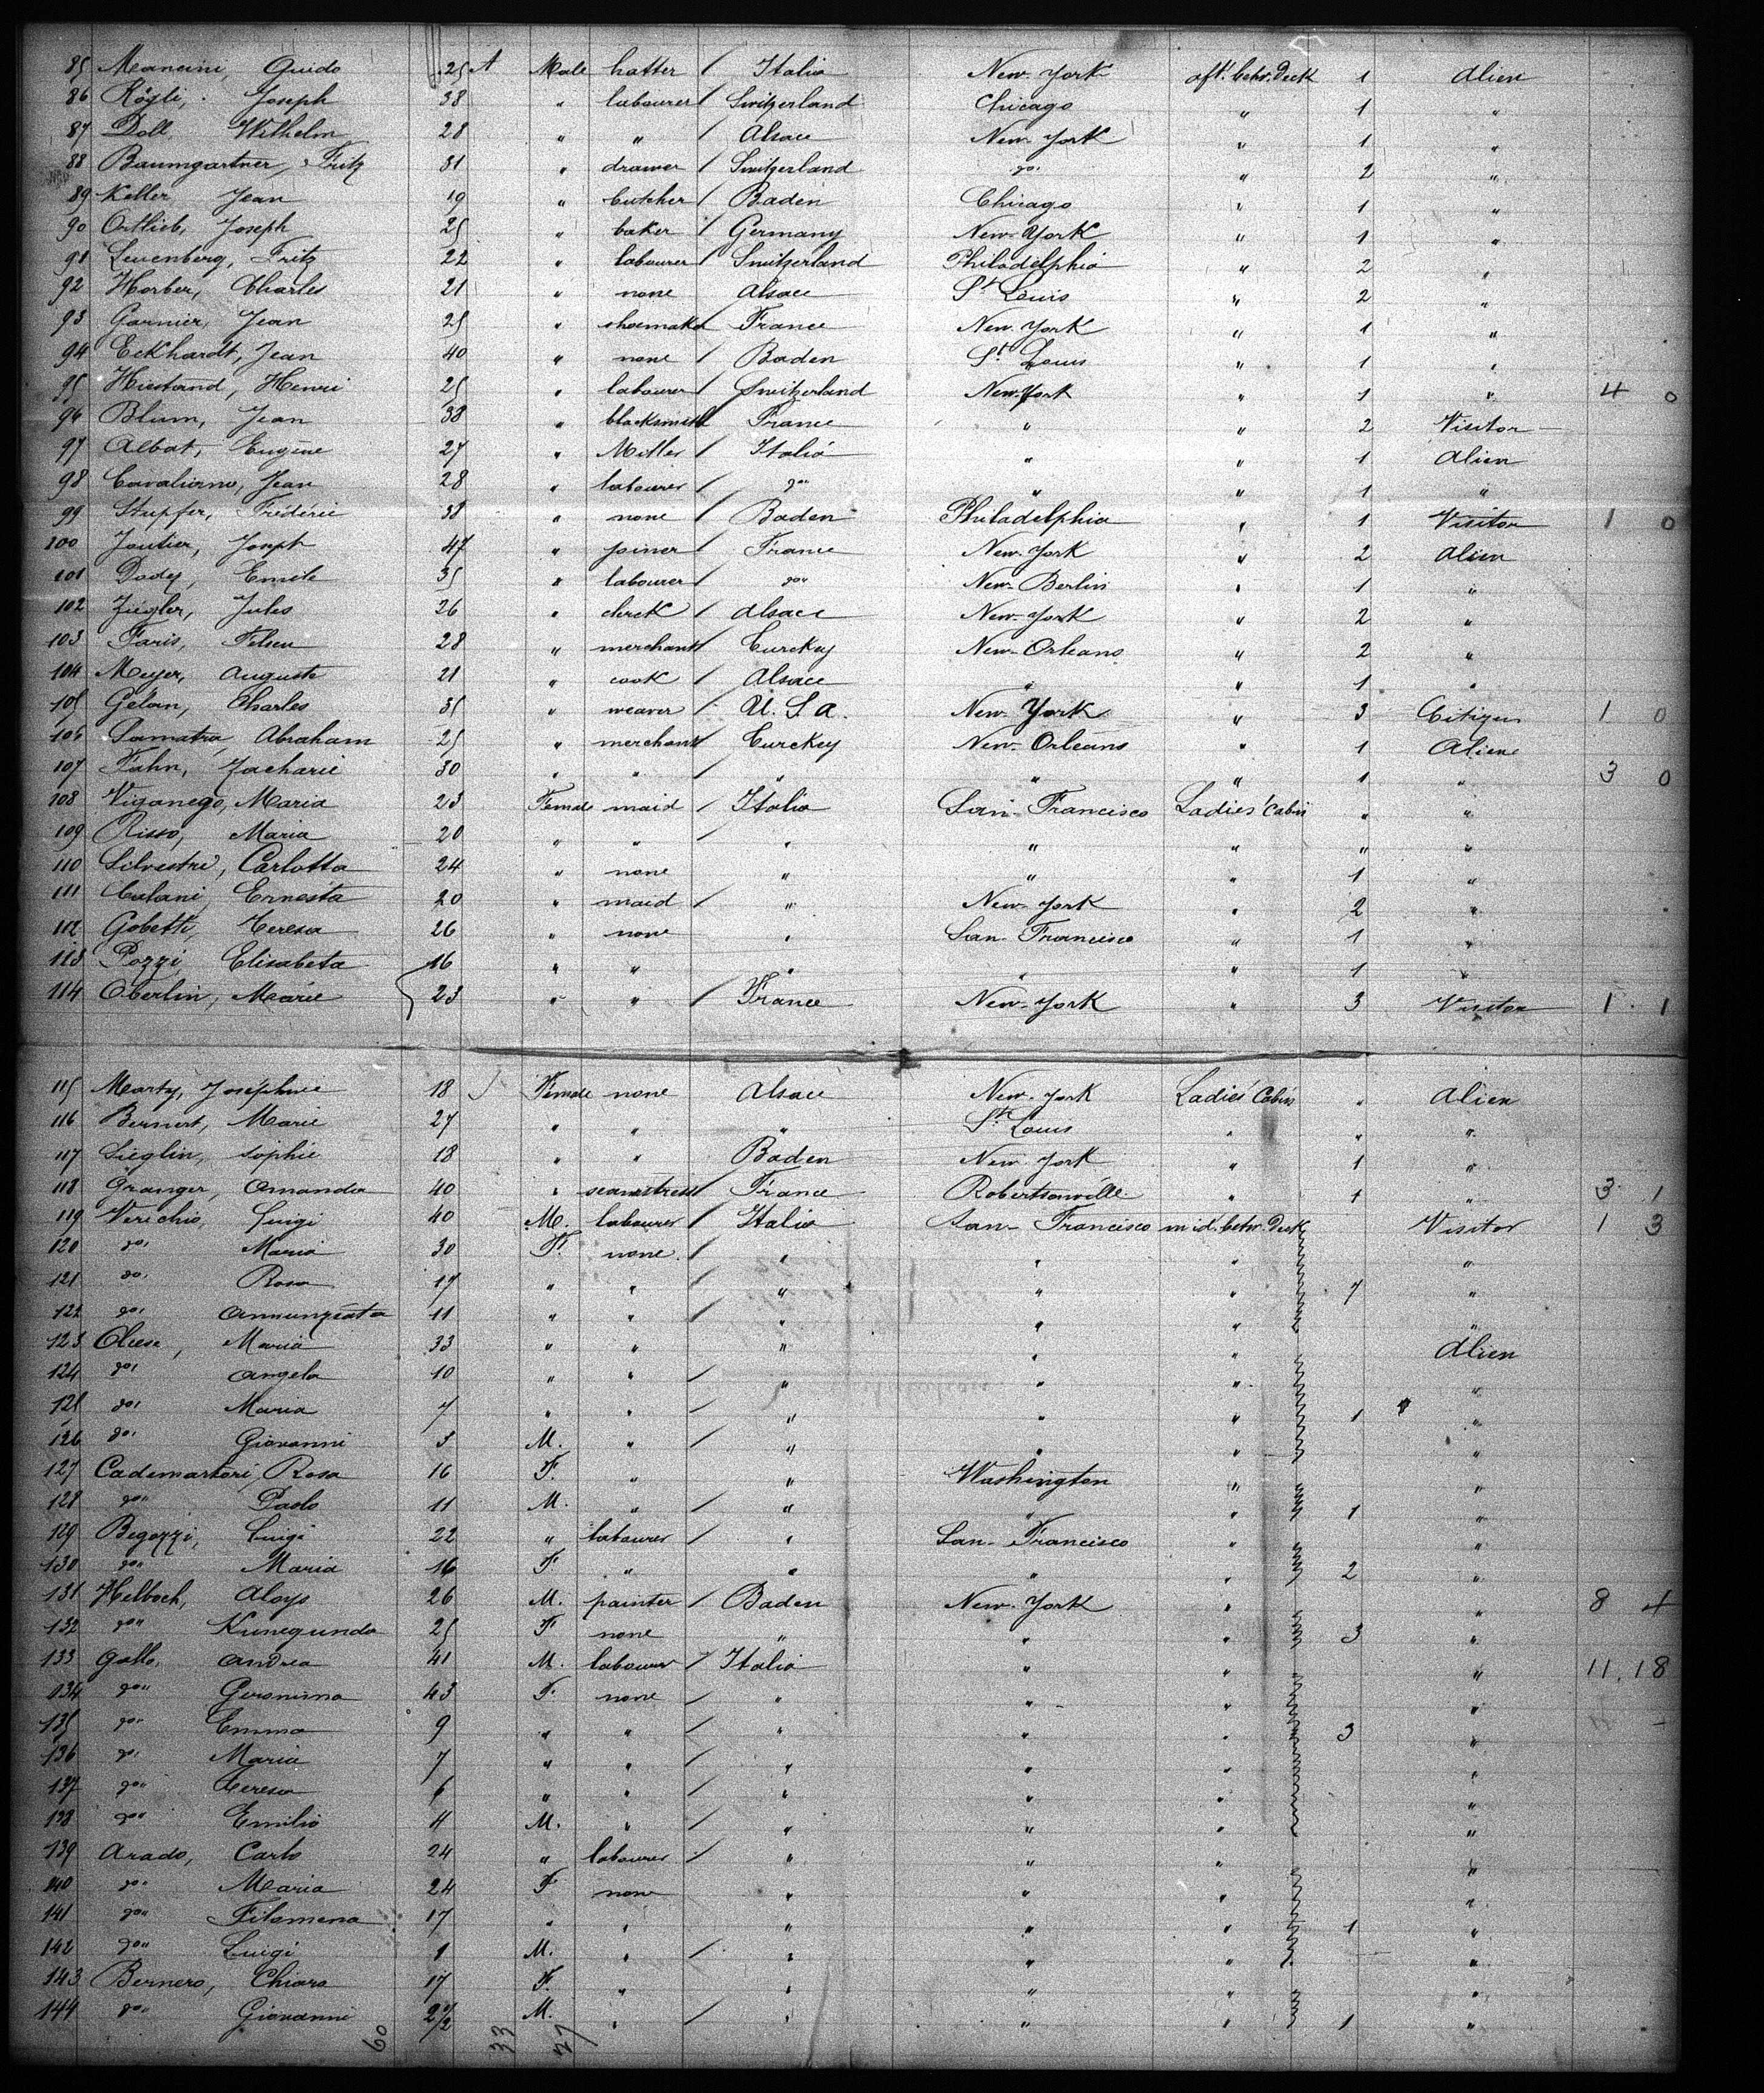 85 Mancini, Guido 25 A Male hatter / Italia New-York aft. betw. Deck 1 Alien
86 Rögli, Joseph 38 " labourer / Switzerland Chicago " 1 "
87 Doll Wilhelm 28 " " / Alsace New-York " 1 "
88 Baumgartner, Fritz 31 " drawer / Switzerland do. " 2 "
89 Keller Jean 19 " butcher / Baden Chicago " 1 "
90 Ortlieb, Joseph 25 " baker / Germany New-York " 1 "
91 Leuenberg, Fritz 22 " labourer / Switzerland Philadelphia " 2 "
92 Horber, Charles 21 " none Alsace St Louis " 2 "
93 Garnier, Jean 25 " shoemaker France New-York " 1 "
94 Eckhardt, Jean 40 " none / Baden St Louis " 1 "
95 Hiestand, Henri 25 " labourer / Switzerland New-York " 1 " 4 0
96 Blum, Jean 38 " blacksmith France " " 2 Visitor
97 Albat, Eugène 27 " Miller / Italia " " 1 Alien
98 Jean 28 " labourer / do " " 1 "
99 Stupfer, Frédéric 38 " none / Baden Philadelphia " 1 Visitor 1 0
100 Joutier, Joseph 47 " joiner / France New-York " 2 Alien
101 Emile 35 " labourer / do New-Berlin " 1 "
102 Ziegler, Jules 26 " clerk / Alsace New-York " 2 "
103 Faris, 28 " merchant Turckey New-Orleans " 2 "
104 Meyer, Auguste 21 " cook / Alsace " " 1 "
105 Gelan, Charles 35 " weaver / U.S.A. New York " 3 Citizen 1 0
106 Samatra, Abraham 25 " merchant Turckey New-Orleans " 1 Alien
107 Fahn, Zacharie 30 " " / " " " 1 " 3 0
108 Viganego, Maria 23 Female maid / Italia San-Francisco Ladies' Cabin " "
109 Risso, Maria 20 " " / " " " " "
110 Silvestri, Carlotta 24 " none " " " 1 "
111 Ernesta 20 " maid / " New-York " 2 "
112 Gobetti, Teresa 26 " none " San-Francisco " 1 "
113 Pozzi Elisabeta 16 " " " " " 1 "
114 Oberlin, Marie 23 " " / France New-York " 3 Visitor 1 . 1
115 Marty, Josephine 18 Female none Alsace New-York Ladies' Cabin " Alien
116 Marie 27 " " " St Louis " " "
117 Sieglin, Sophie 18 " " Baden New York " 1 "
118 Granger, Amanda 40 " seamstress / France Robertsonville " 1 " 3 1
119 Verichio, Luigi 40 M. labourer / Italia San-Francisco mid. betw. Deck Visitor 1 3
120 do. Maria 30 F. none / " " " "
121 do. Rosa 17 " " / " " " 7 "
122 do. Annunziata 11 " " / " " " "
123 Maria 33 " " " " " Alien
124 do. Angela 10 " " / " " " "
125 do. Maria 7 " " / " " " 1 "
126 do. Giovanni 3 M. " / " " " "
127 Cademartori, Rosa 16 F. " " Washington " "
128 do Paolo 11 M. " / " " " 1 "
129 Begozzi, Luigi 22 " labourer / " San-Francisco " "
130 do Maria 16 F. " " " " 2 "
131 Helbach, Aloys 26 M. painter / Baden New-York " " 8 4
132 do Kunegunda 25 F none " " " 3 "
133 Gallo, Andrea 41 M. labourer / Italia " " " 11.18
134 do Geronima 43 F. none / " " " "
135 do Emma 9 " " / " " " 3 "
136 do Maria 7 " " / " " " "
137 do Teresa 6 " " / " " " "
138 do Emilio 4 M. " / " " " "
139 Arado, Carlo 24 " labourer / " " " "
140 do Maria 24 F none " " " "
141 do Filomena 17 " " " " " 1 "
142 do Luigi 1 M. " / " " " "
143 Bernero, Chiara 17 F. " " " " "
144 do Giovanni M. " / " " " 1 "
60 33 27